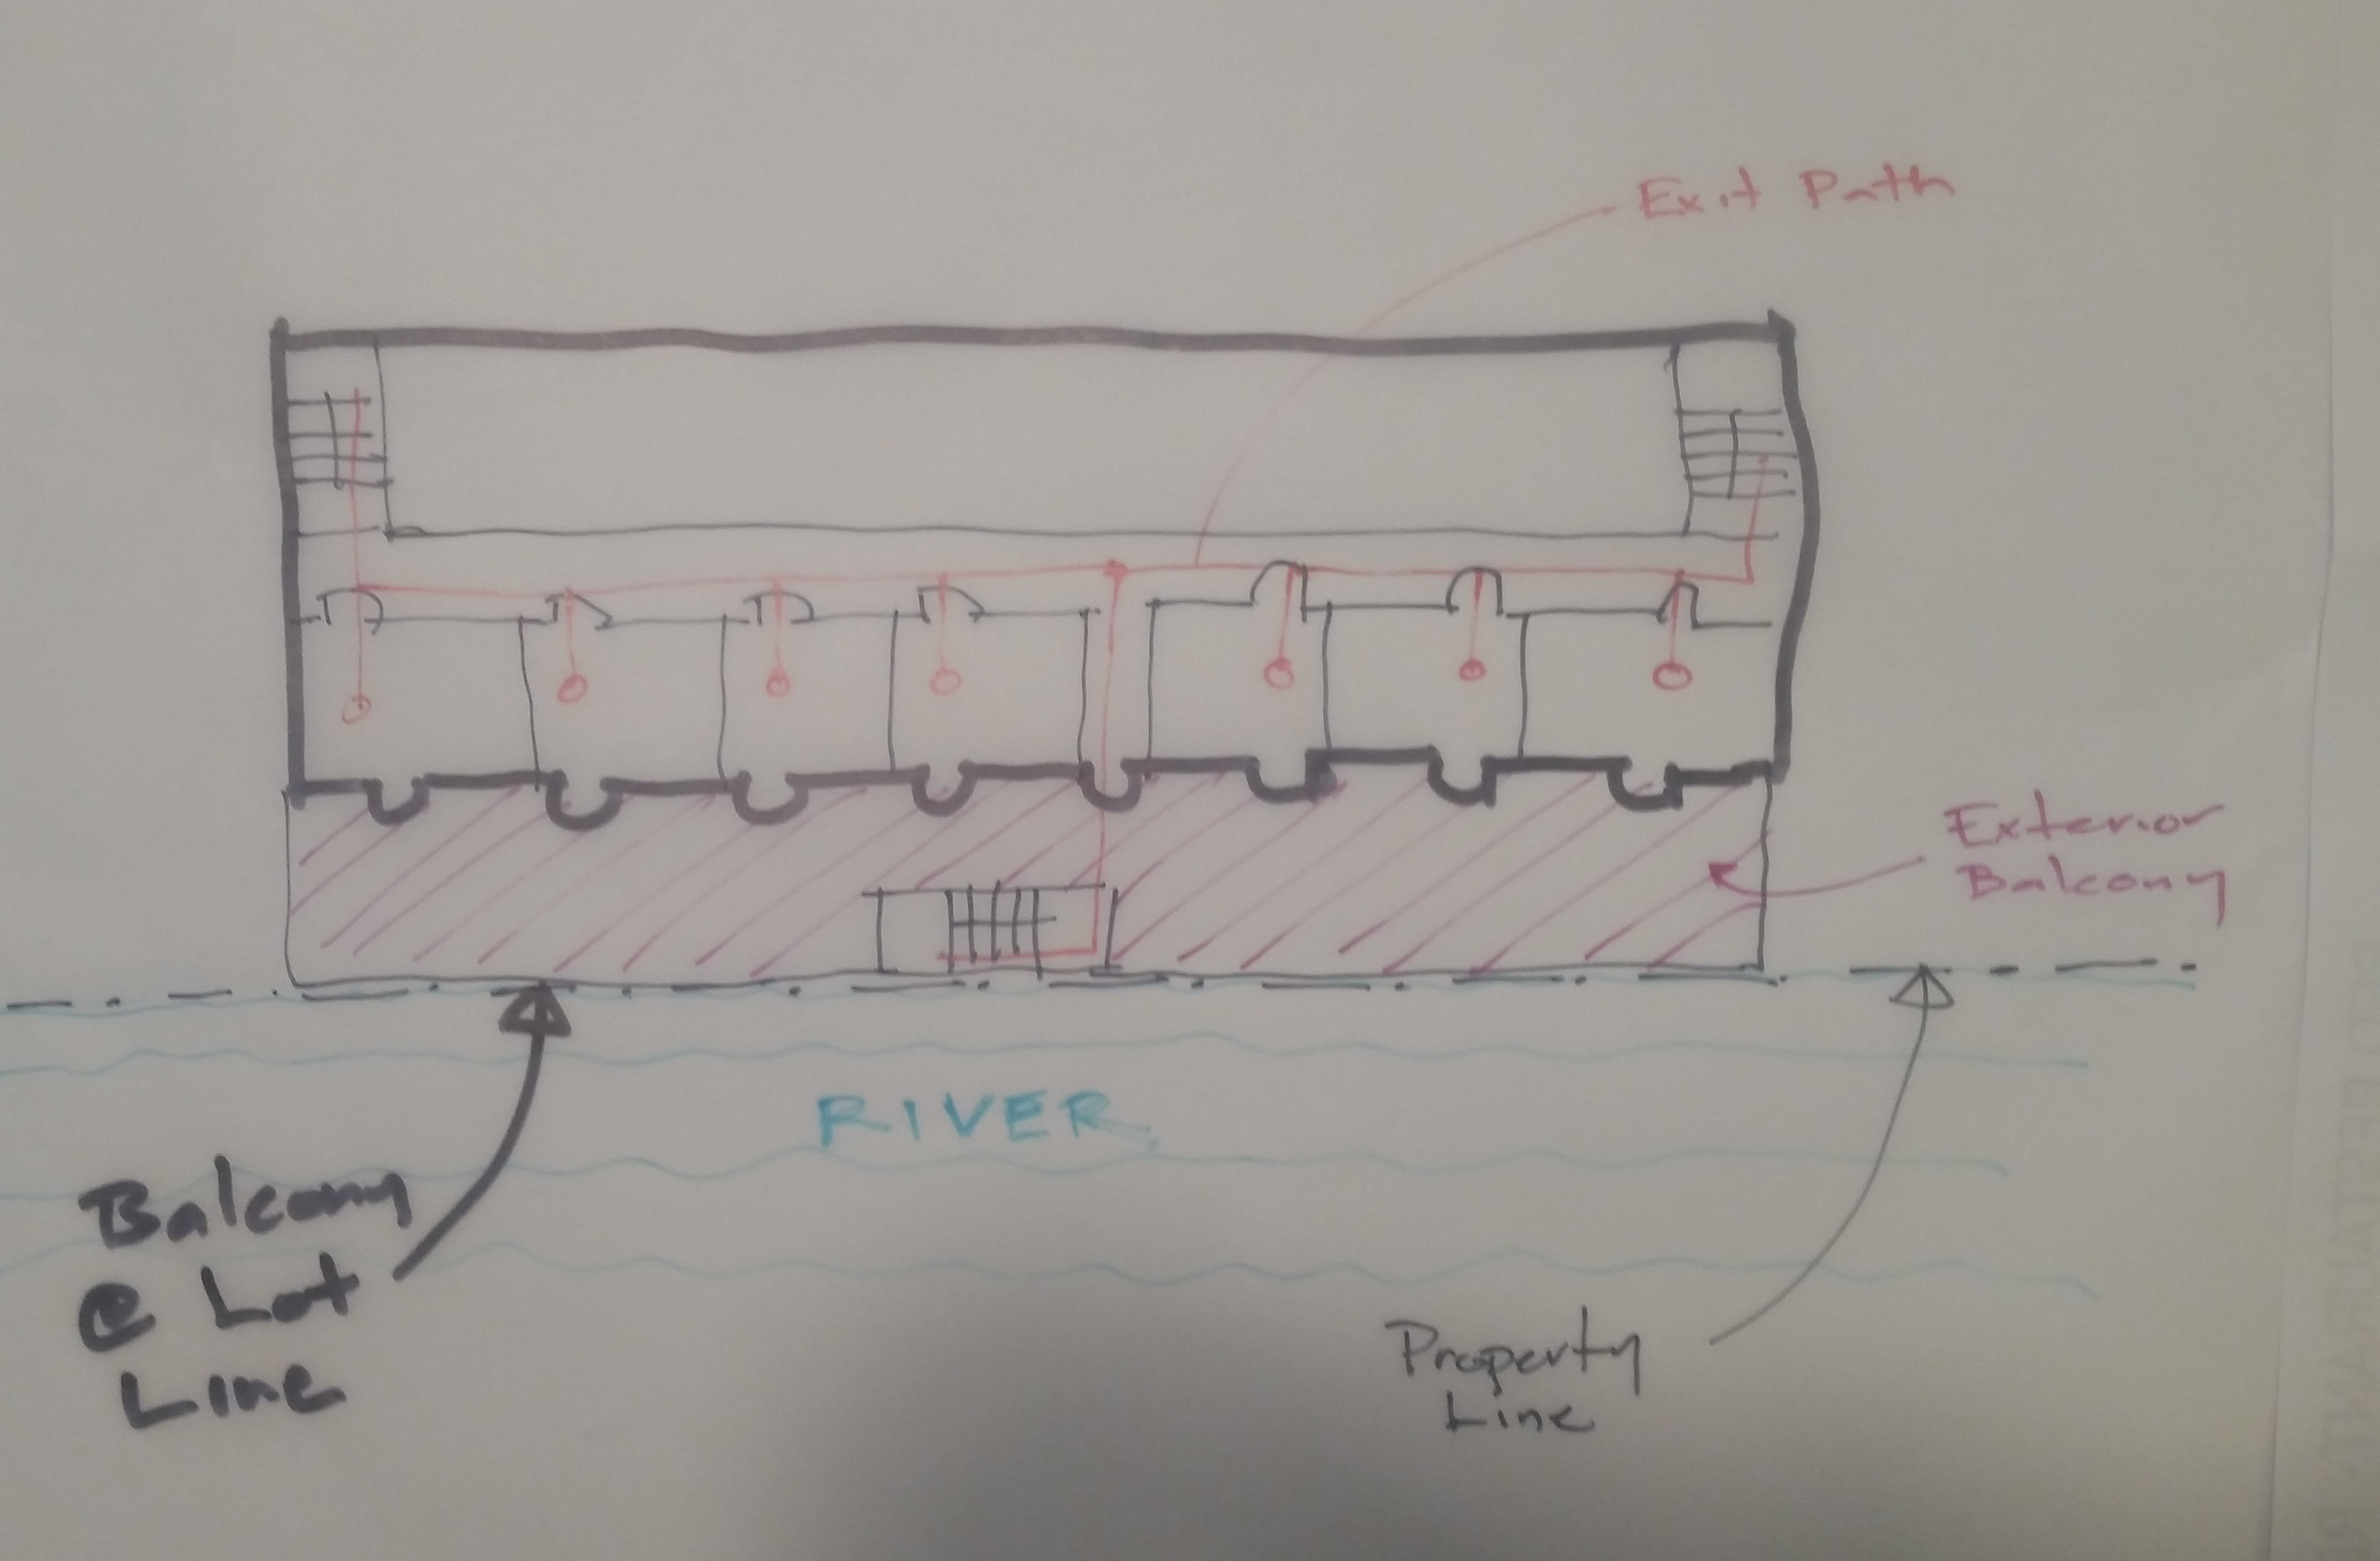 Exit Path
Exterior
Balcony
RIVER
Balcony
@ Lot
Line
Property
Line